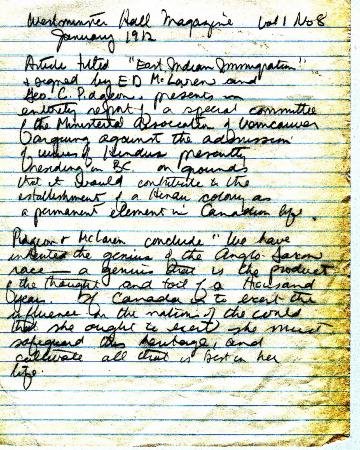 Westminster Hall Magazine Vol 1 No 8
January 1912
Article titled "East Indian Immigration"
& signed by E.D. McLaren and
Geo. C. Pidgeon, presents in
entirety report of a special committee
of the Ministerial Association of Vancouver
arguing against the admission
of wives of Hindus presently
residing in BC on grounds
that it would contribute to the
establishment of a Hindu colony as
a permanent element in Canadian life.
Pidgeon & McLaren conclude "We have
inherited the genius of the Anglo Saxon
race — a genius that is the product
of the thought and toil of a thousand
years. If Canada is to exert the
influence on the nations of the world
that she ought to exert she must
safeguard this heritage, and
cultivate all that is best in her
life.